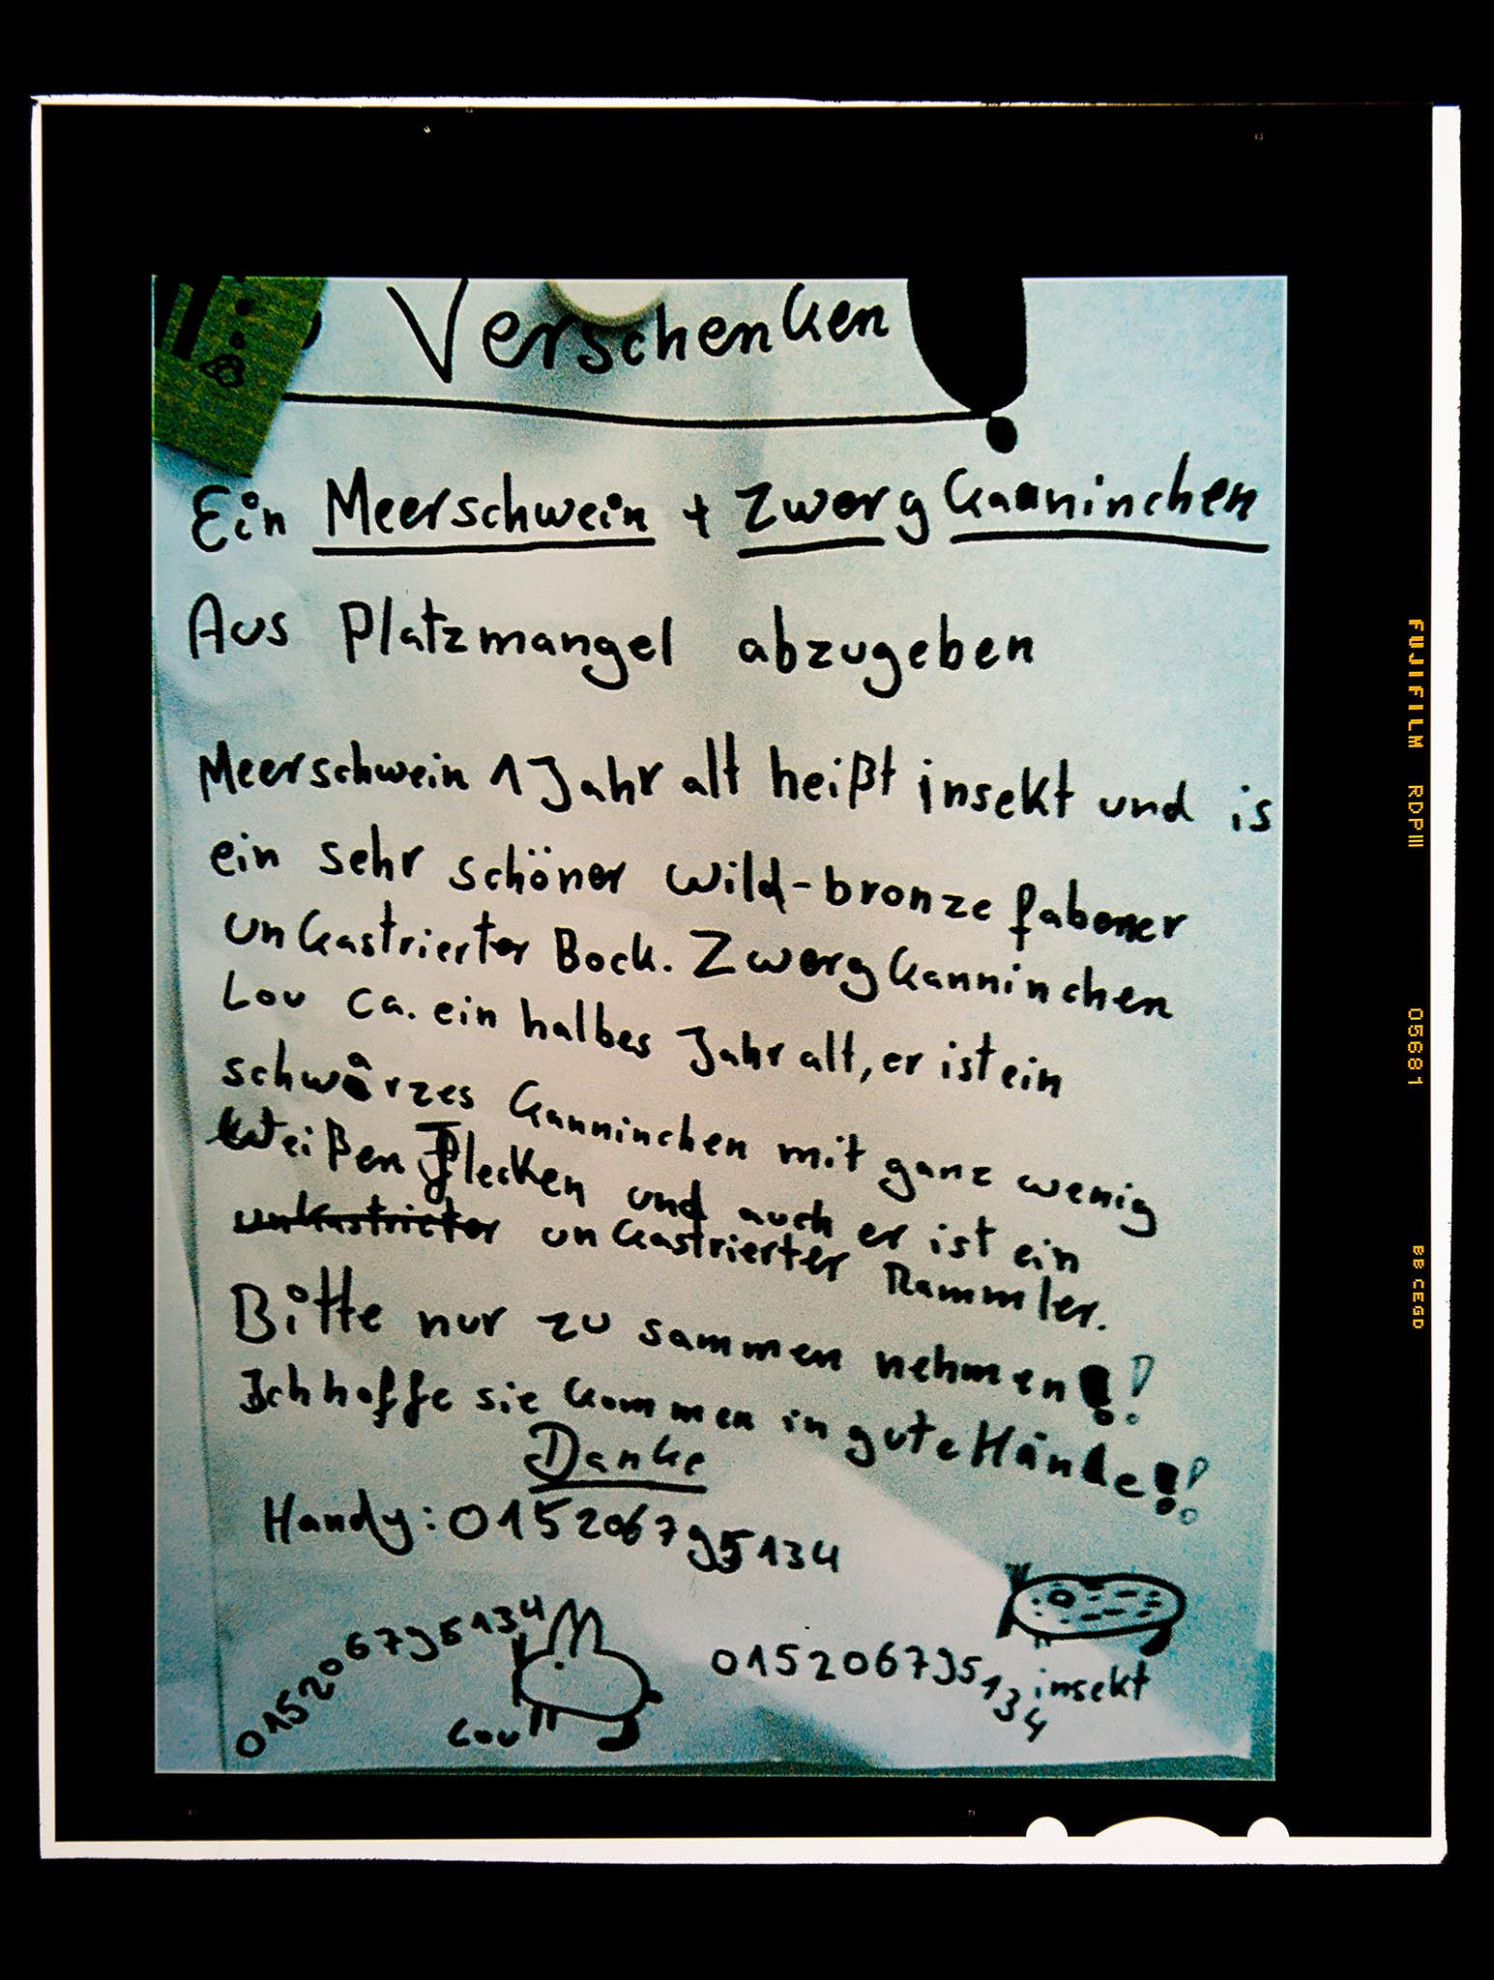 Verschenken
Ein Meerschwein + Zwerg Kanninchen
Aus Platzmangel abzugeben
Meerschwein 1 Jahr alt heißt insekt und is
ein sehr schöner Wild-bronze fabener
unkastrierter Bock. Zwerg Kanninchen
Lou ca. ein halbes Jahr alt, er ist ein
schwarzes Kanninchen mit ganz wenig
Weißen Flecken und auch er ist ein
unkastrierter Rammler.
Bitte nur zu sammen nehmen!!
Ich hoffe sie kommen in gute Hände!!
Danke
Handy: 015206795134
015206795134
Lou
015206795134
insekt
FUJIFILM RDPIII 05681 BB CEGD